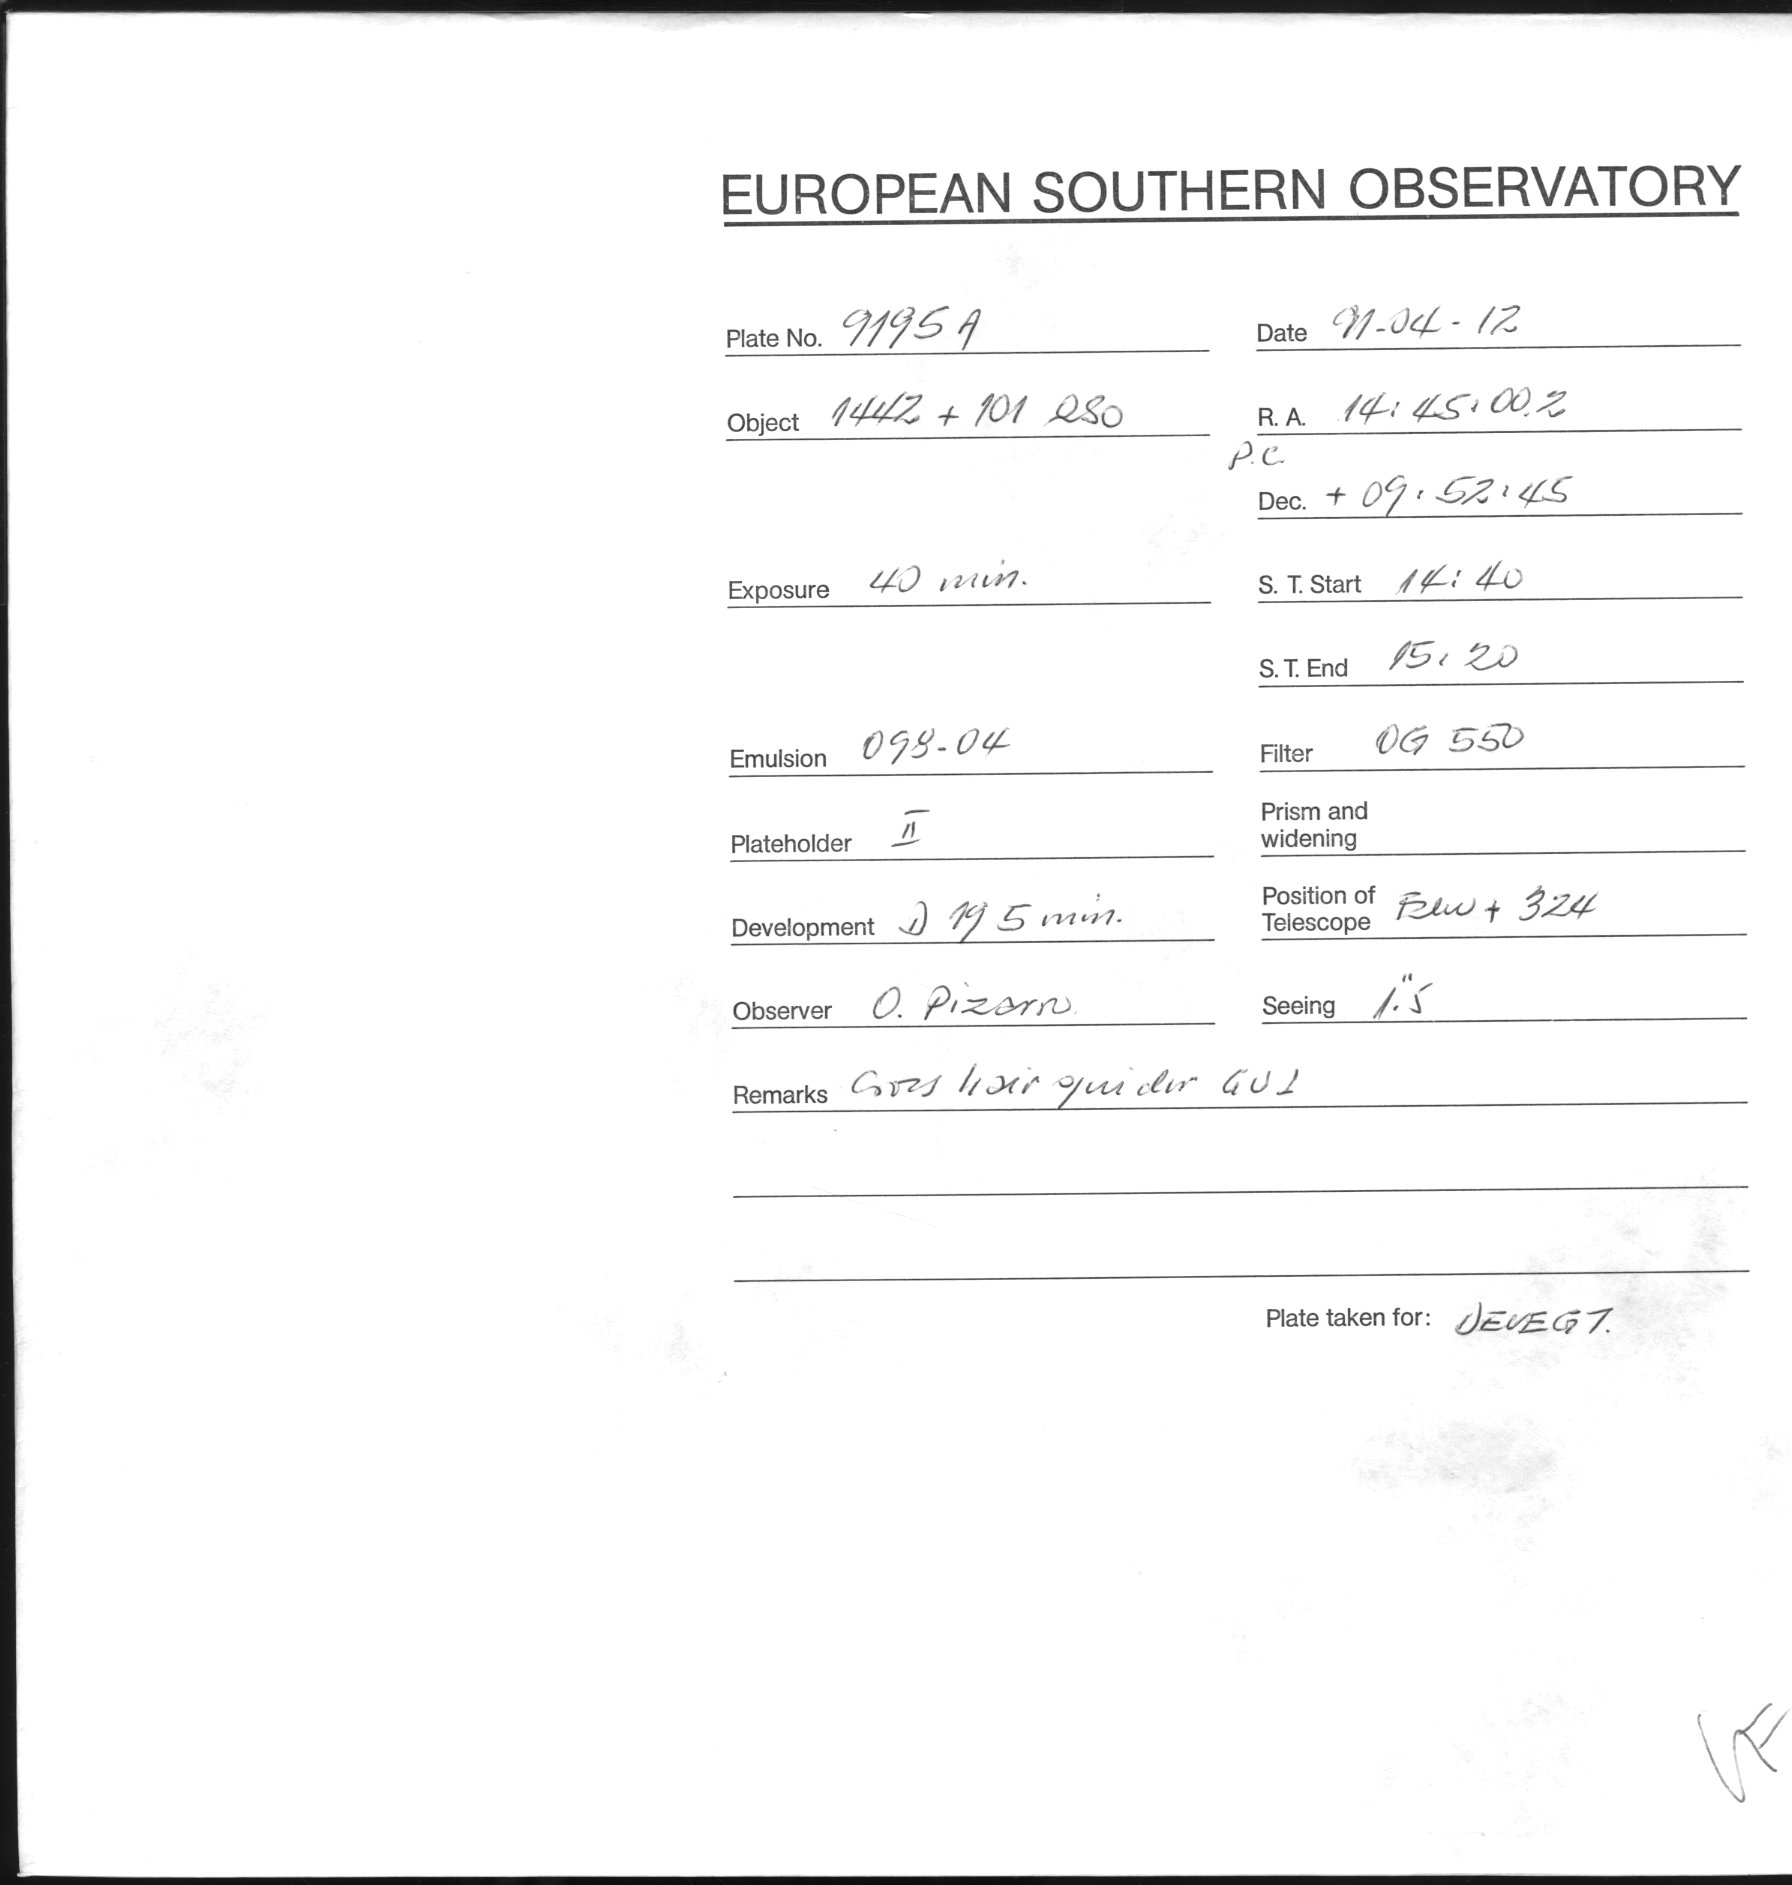 EUROPEAN SOUTHERN OBSERVATORY
Plate No. 9195 A
Date 91-04-12
Object 1442 + 101 QSO
R. A. 14:45:00.2
P.C.
Dec. + 09:52:45
Exposure 40 min.
S. T. Start 14:40
S. T. End 15:20
Emulsion 098-04
Filter OG 550
Plateholder II
Prism and
widening
Development D 19 5 min.
Position of
Telescope + 324
Observer O. Pizarro
Seeing 1."5
Remarks hair guider GU1
Plate taken for: DEVEGT.